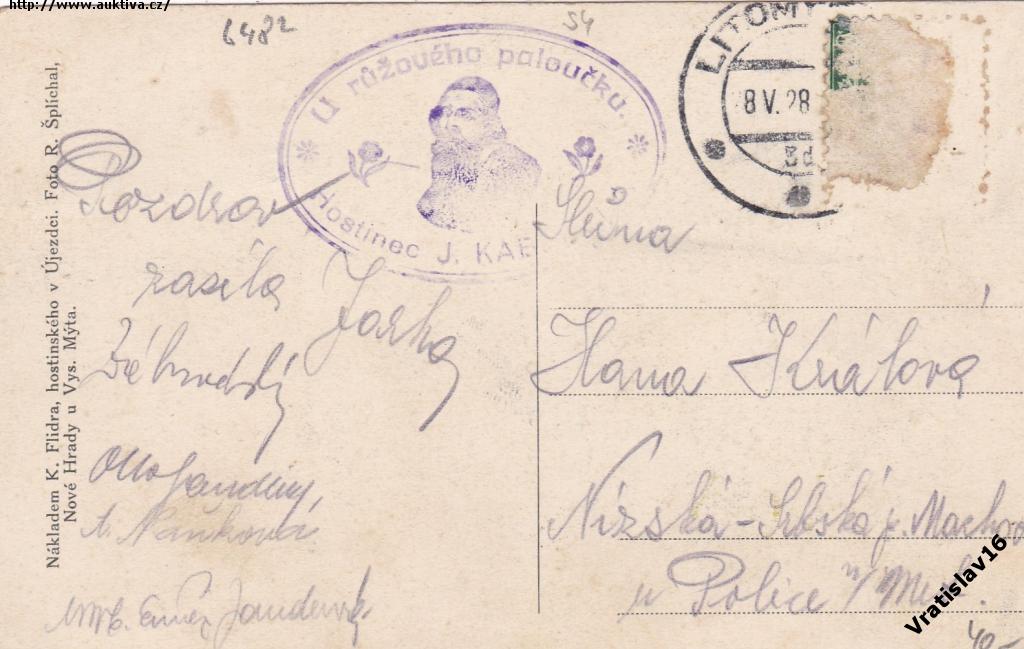 http://www.auktiva.cz/
6482
54
U růžového paloučku.
Hostinec J. KAE
LITOMY
8 V. 28
Nákladem K. Flidra, hostinského v Újezdci. Foto R. Šplíchal,
Nové Hrady u Vys. Mýta.
Pozdrav
zasílá Jarka
Otto
Slečna
Hana Králová
Nízská-Srbská p. Machov
u Police n/Met.
Vratislav16
40-